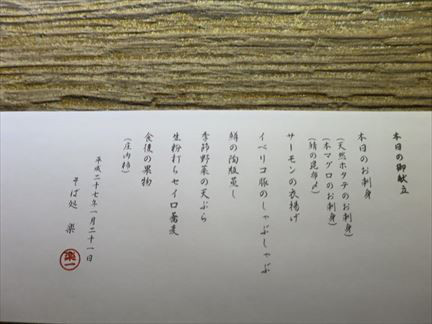 本日の御献立
本日のお刺身
(天然ホタテのお刺身)
(本マグロのお刺身)
(鯖の昆布〆)
サーモンの衣揚げ
イベリコ豚のしゃぶしゃぶ
鯛の陶板蒸し
季節野菜の天ぷら
生粉打ちセイロ蕎麦
食後の果物
(庄内柿)
平成二十七年一月二十一日
そば処 楽
楽一